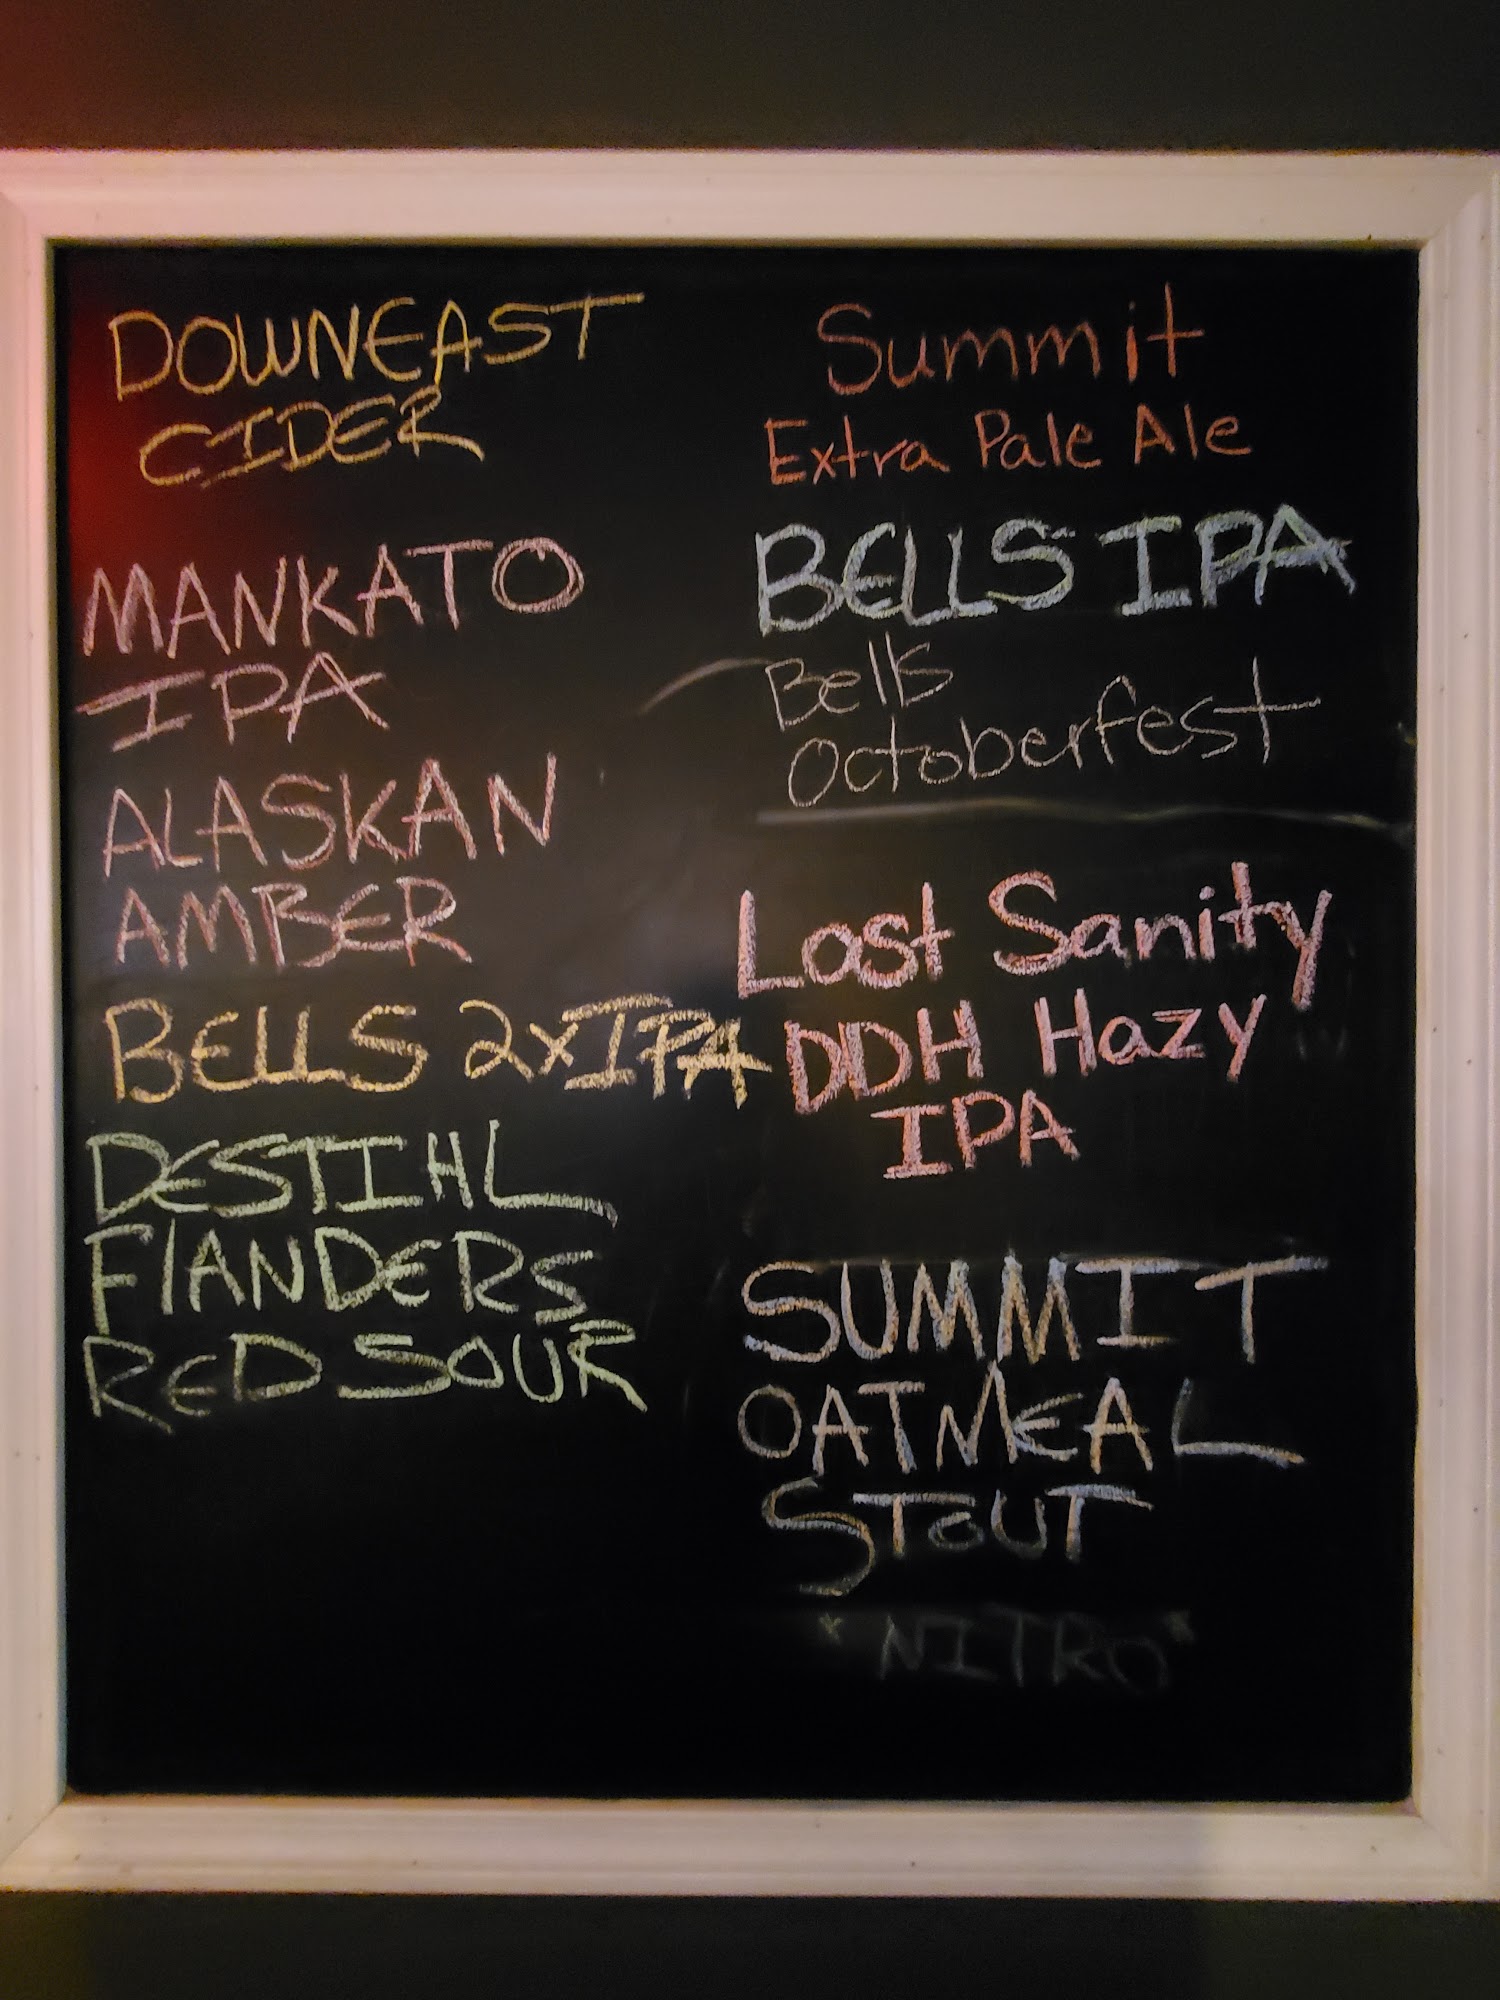 DOWNEAST
CIDER
MANKATO
IPA
ALASKAN
AMBER
BELLS 2XIPA
DESTIHL
FLANDERS
RED SOUR
Summit
Extra Pale Ale
BELLS IPA
Bell's
Octoberfest
Lost Sanity
DDH Hazy
IPA
SUMMIT
OATMEAL
STOUT
*NITRO*